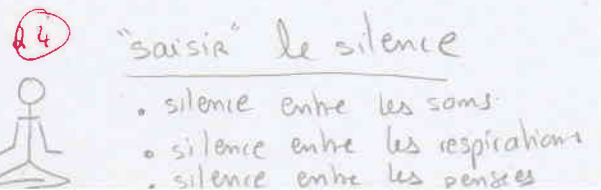 24
"saisir" le silence
• silence entre les sons
• silence entre les respirations
• silence entre les pensées